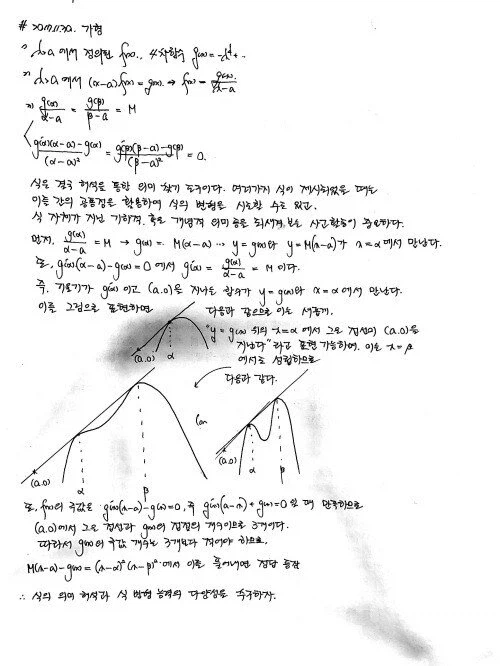 1) x>a 에서 정의된 f(x), 4차함수 g(x) = -x⁴+..
2) x>a 에서 (x-a)f(x) = g(x) → f(x) = g(x)/(x-a)
3) g(α)/(α-a) = g(β)/(β-a) = M
g'(α)(α-a)-g(α)/(α-a)² = g'(β)(β-a)-g(β)/(β-a)² = 0.
식은 결국 해석을 통한 의미 찾기 도구이다. 여러가지 식이 제시되었을 때는
이들 간의 공통점을 활용하여 식의 변형을 시도할 수도 있고,
식 자체가 지닌 기하적, 혹은 개념적 의미 등을 되새겨 보는 사고활동이 중요하다.
먼저, g(α)/(α-a) = M → g(α) = M(α-a) … y = g(x)와 y = M(x-a)가 x = α에서 만난다.
또, g'(α)(α-a)-g(α)=0 에서 g'(α) = g(α)/(α-a) = M 이다.
즉, 기울기가 g'(α) 이고 (a,0)을 지나는 함수가 y = g(x)와 x = α에서 만난다.
이를 그림으로 표현하면 다음과 같으므로 이는
"y = g(x) 위의 x = α 에서 그은 접선이 (a,0)을
지난다"라고 표현 가능하며, 이는 x = β
에서도 성립하므로
(a,0) α
다음과 같다.
(a,0) α β
(a,0) α β
또, f(x)의 극값은 g'(x)(x-a)-g(x)=0, 즉 일 때 만족하므로
(a,0)에서 그은 접선과 g(x)의 접점의 개수이므로 3개이다.
따라서 g(x)의 극값 개수는 3개보다 적어야 하므로,
M(x-a)-g(x) = (x-α)²(x-β)² 에서 이를 풀어내면 정답 등장
∴ 식의 의미 해석과 식 변형 능력의 다양성을 추구하자.